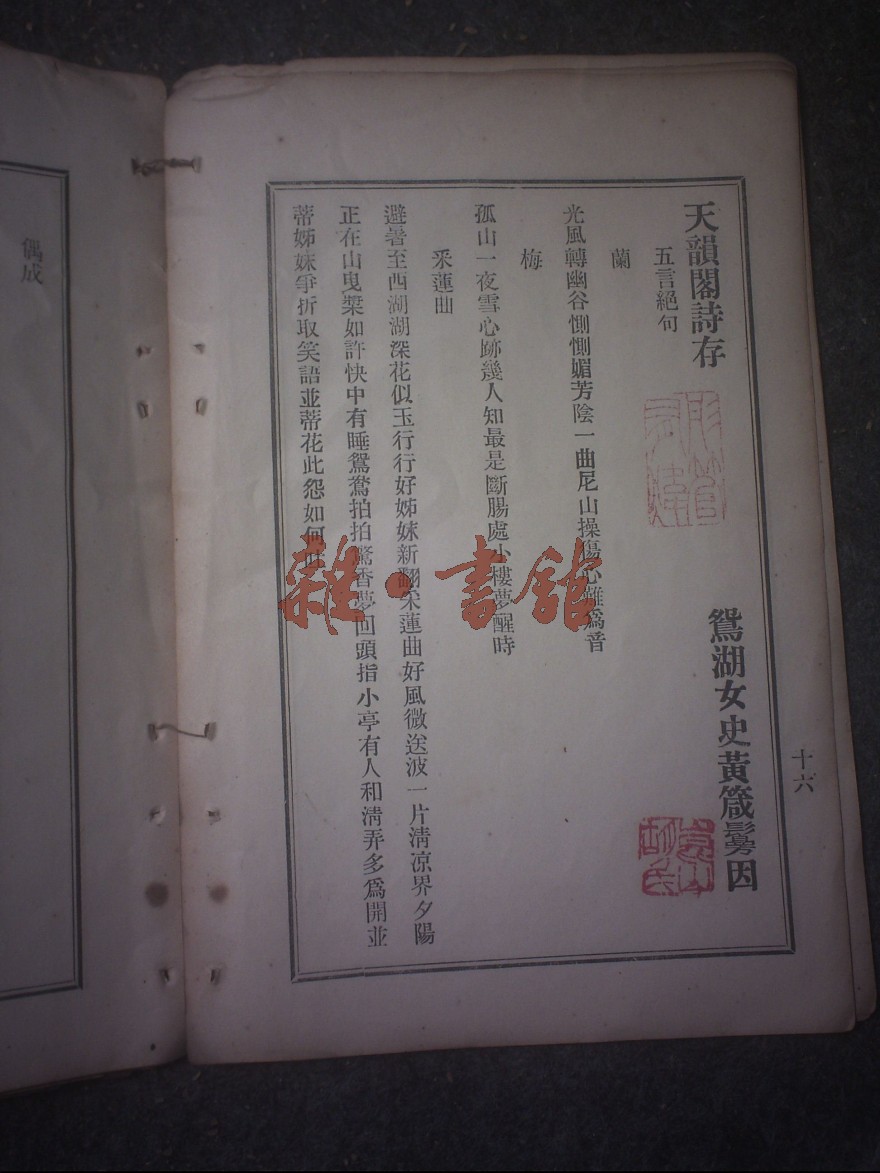 天韻閣詩存
鴛湖女史黃箴鬘因
五言絕句
蘭
光風轉幽谷惻惻媚芳陰一曲尼山操傷心難爲音
梅
孤山一夜雪心跡幾人知最是斷腸處小樓夢醒時
采蓮曲
避暑至西湖湖深花似玉行行好姊妹新翻采蓮曲好風微送波一片淸凉界夕陽
正在山曳槳如許快中有睡鴛鴦拍拍驚香夢回頭指小亭有人和淸弄多爲開並
蒂姊妹爭折取笑語並蒂花此怨如何
十六
偶成
雜·書館
彤管
崑山
胡氏